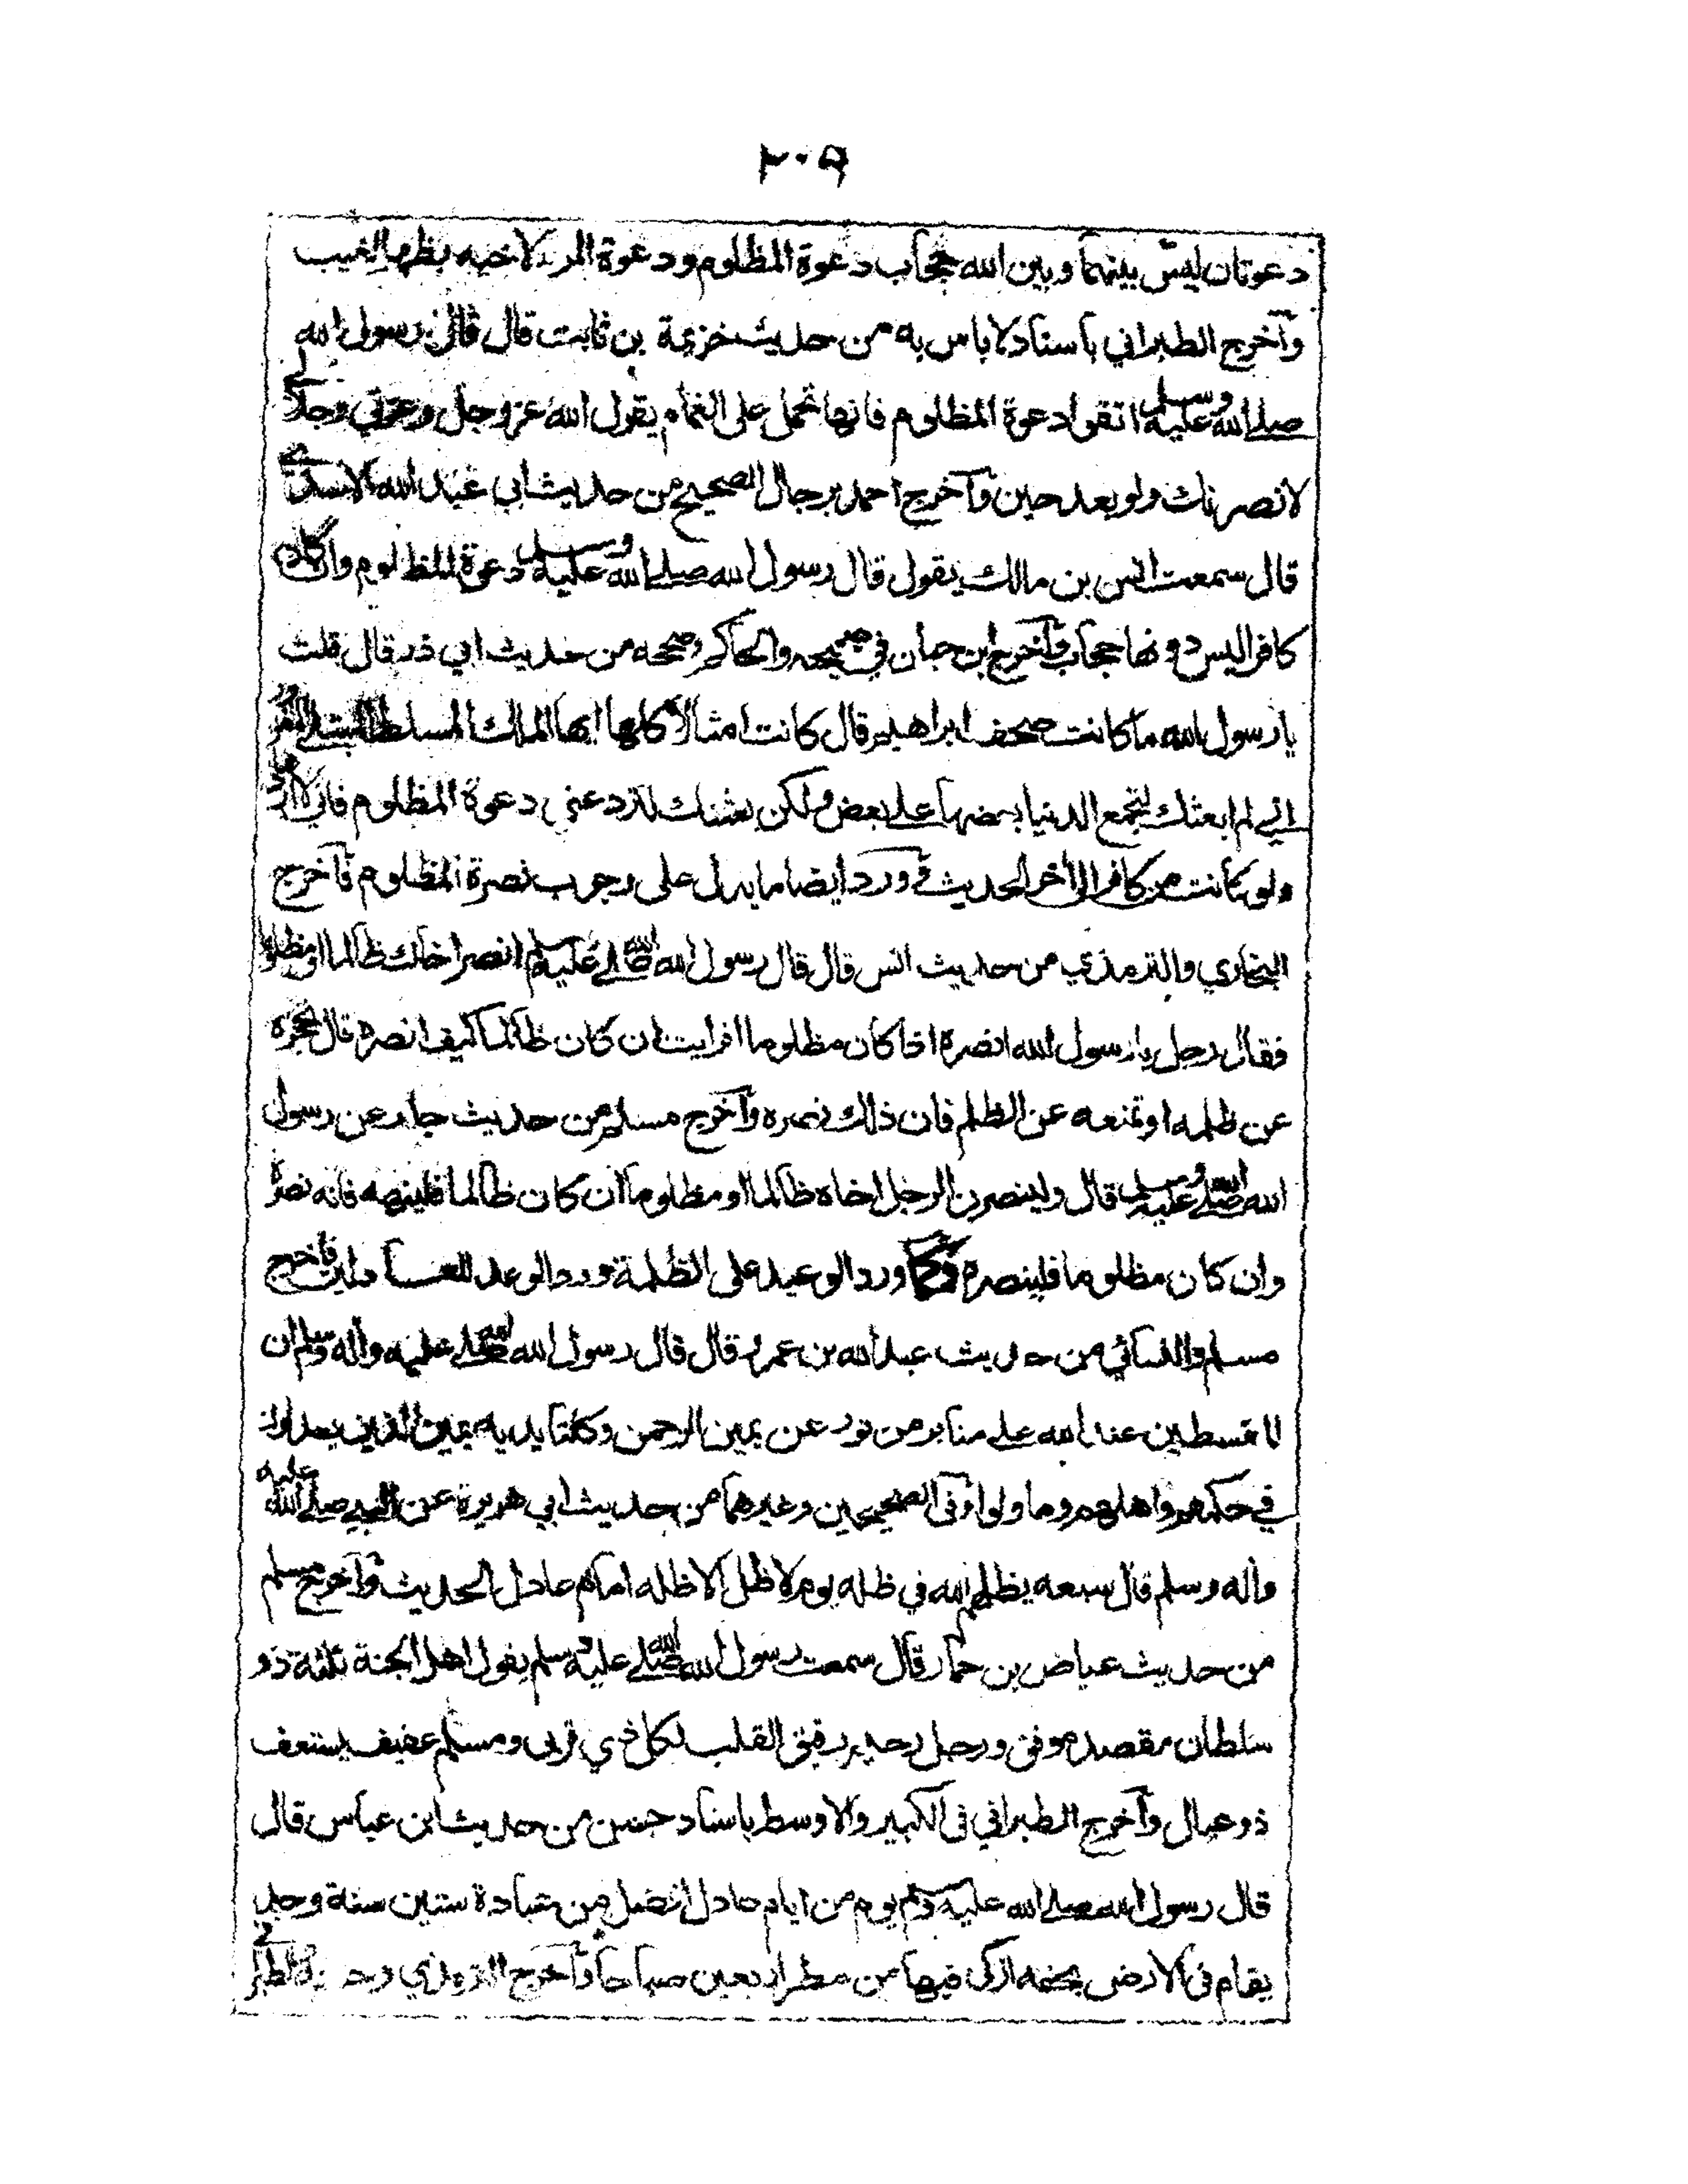 ٢٠٩
دعوتان ليس بينهما وبين الله حجاب دعوة المظلوم ودعوة المرء لاخيه بظهر الغيب
وآخرج الطبراني باسناد لاباس به من حديث خزيمة بن ثابت قال قال رسول الله
صلى الله عليه وسلم اتقوا دعوة المظلوم فانها تحمل على الغمام يقول الله عزوجل وعزتي وجلالي
لانصرنك ولو بعد حين وآخرج احمد برجال الصحيح من حديث ابي عبد الله الاسدي
قال سمعت انس بن مالك يقول قال رسول الله صلى الله عليه وسلم دعوة المظلوم وان كان
كافرا ليس دونها حجاب وآخرج ابن حبان في صحيحه والحاكم وصححه من حديث ابي ذر قال قلت
يا رسول الله ما كانت صحف ابراهيم قال كانت امثالا كلها ايها الملك المسلط المبتلى المغرور
اني لم ابعثك لتجمع الدنيا بعضها على بعض ولكن بعثتك لترد عني دعوة المظلوم فاني لا اردها
ولو كانت من كافر الى آخر الحديث وورد ايضا ما يدل على وجوب نصرة المظلوم فآخرج
البخاري والترمذي من حديث انس قال قال رسول الله صلى الله عليه وسلم انصر اخاك ظالما او مظلوما
فقال رجل يا رسول الله انصره اذا كان مظلوما افرايت ان كان ظالما كيف انصره قال تحجزه
عن ظلمه او تمنعه عن الظلم فان ذلك نصره وآخرج مسلم من حديث جابر عن رسول
الله صلى الله عليه وسلم قال ولينصرن الرجل اخاه ظالما او مظلوما ان كان ظالما فلينهه فانه نصرة
وان كان مظلوما فلينصره وكما ورد الوعيد على الظلمة ورد الوعد للعادلين فآخرج
مسلم والنسائي من حديث عبد الله بن عمر قال قال رسول الله صلى الله عليه وآله وسلم ان
المقسطين عند الله على منابر من نور عن يمين الرحمن وكلتا يديه يمين الذين يعدلون
في حكمهم واهليهم وما ولوا وفى الصحيحين وغيرهما من حديث ابي هريرة عن النبي صلى الله عليه
وآله وسلم قال سبعه يظلهم الله في ظله يوم لا ظل الا ظله امام عادل الحديث وآخرج مسلم
من حديث عياض بن حمار قال سمعت رسول الله صلى الله عليه وسلم يقول اهل الجنة ثلثة ذو
سلطان مقصد موفق ورجل رحيم رقيق القلب لكل ذي قربى ومسلم عفيف يستعف
ذو عيال وآخرج الطبراني فى الكبير والاوسط باسناد حسن من حديث ابن عباس قال
قال رسول الله صلى الله عليه وسلم يوم من ايام عادل افضل من عبادة ستين سنة وحد
يقام فى الارض بحقه ازكى فيها من مطر اربعين صباحا وآخرج الترمذي وحسنه والطبراني في